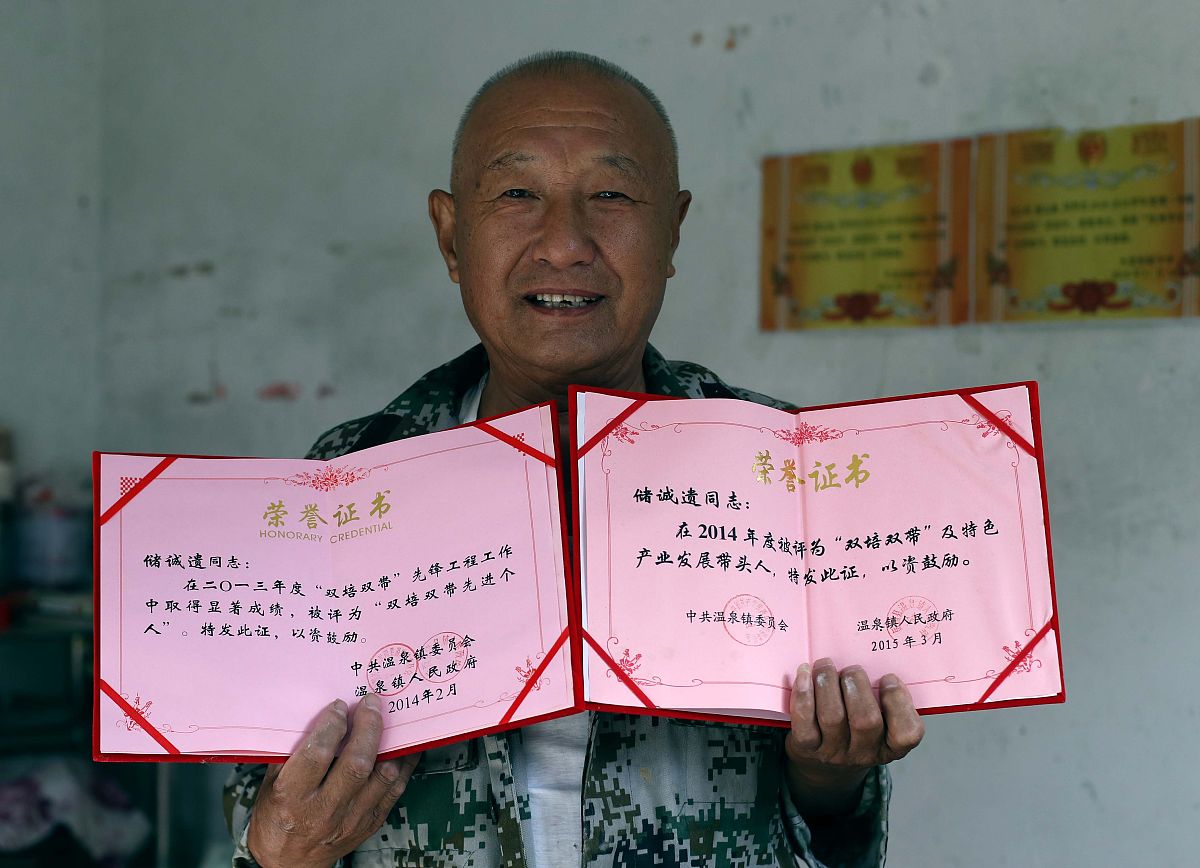 荣誉证书
HONORARY CREDENTIAL
储诚遗同志：
在二〇一三年度“双培双带”先锋工程工作
中取得显著成绩，被评为“双培双带先进个
人”。特发此证，以资鼓励。
中共温泉镇委员会
温泉镇人民政府
2014年2月
荣誉证书
储诚遗同志：
在2014年度被评为“双培双带”及特色
产业发展带头人，特发此证，以资鼓励。
中共温泉镇委员会
温泉镇人民政府
2015年3月